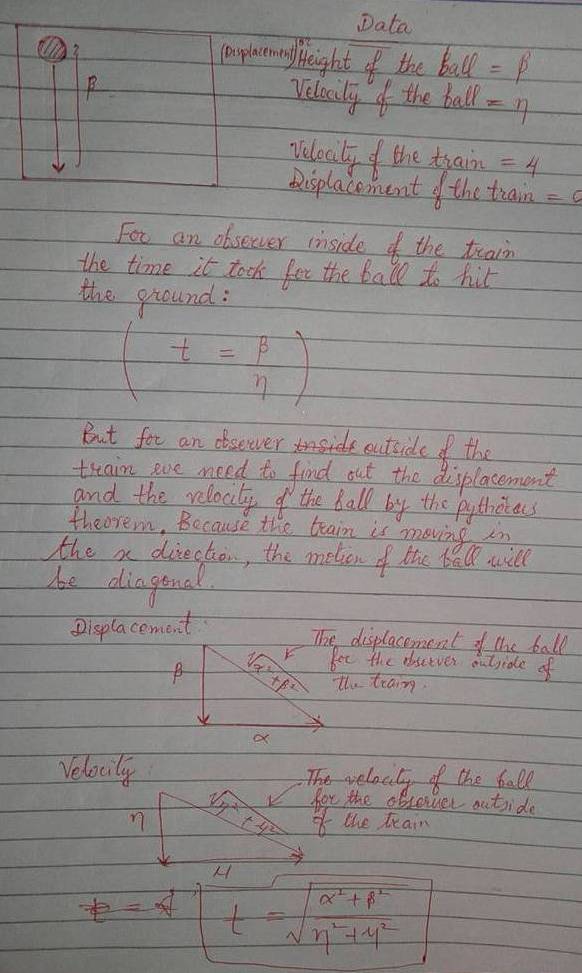 Data
(Displacement) Height of the ball = β
β
Velocity of the ball = η
Velocity of the train = 4
Displacement of the train =
For an observer inside of the train
the time it took for the ball to hit
the ground:
( t = β/η )
But for an observer inside outside of the
train we need to find out the displacement
and the velocity of the ball by the
theorem. Because the train is moving in
the x direction, the motion of the ball will
be diagonal.
Displacement:
The displacement of the ball
for the observer outside of
the train.
β
√α²+β²
α
Velocity:
The velocity of the ball
for the observer outside
of the train
η
μ
t = √(α²+β²/η²+4²)